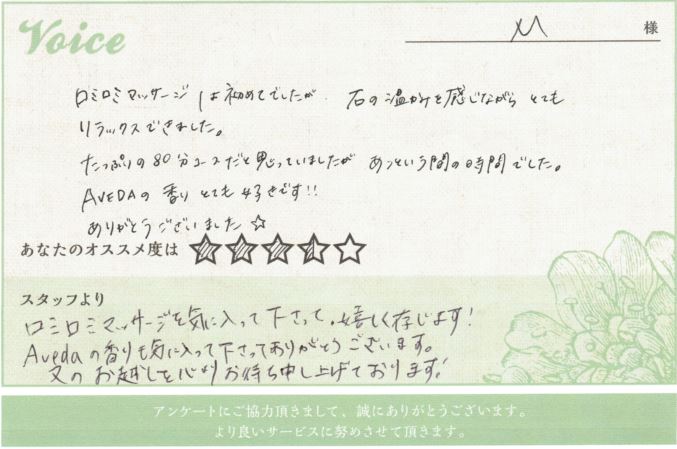 Voice
M 様
ロミロミマッサージは初めてでしたが、石の温かみを感じながら とても
リラックスできました。
たっぷりの80分コースだと思っていましたが あっという間の時間でした。
AVEDAの香り とても好きです!!
ありがとうございました☆
あなたのオススメ度は ★★★★☆
スタッフより
ロミロミマッサージを気に入って下さって、嬉しく存じます!
Avedaの香りも気に入って下さってありがとうございます。
又のお越しを心よりお待ち申し上げております!
アンケートにご協力頂きまして、誠にありがとうございます。
より良いサービスに努めさせて頂きます。